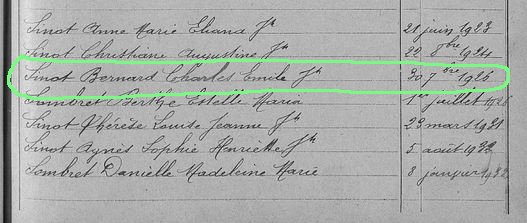 Sinot Anne Marie Eliana Jh 21 juin 1923
Sinot Christiane Augustine Jh 22 8bre 1924
Sinot Bernard Charles Emile Jh 20 7bre 1926
Sombret Berthe Estelle Maria 1er juillet 1928
Sinot Thérèse Louise Jeanne Jh 23 mars 1931
Sinot Agnès Sophie Henriette Jh 5 août 1932
Sombret Danielle Madeleine Marie 8 janvier 1932